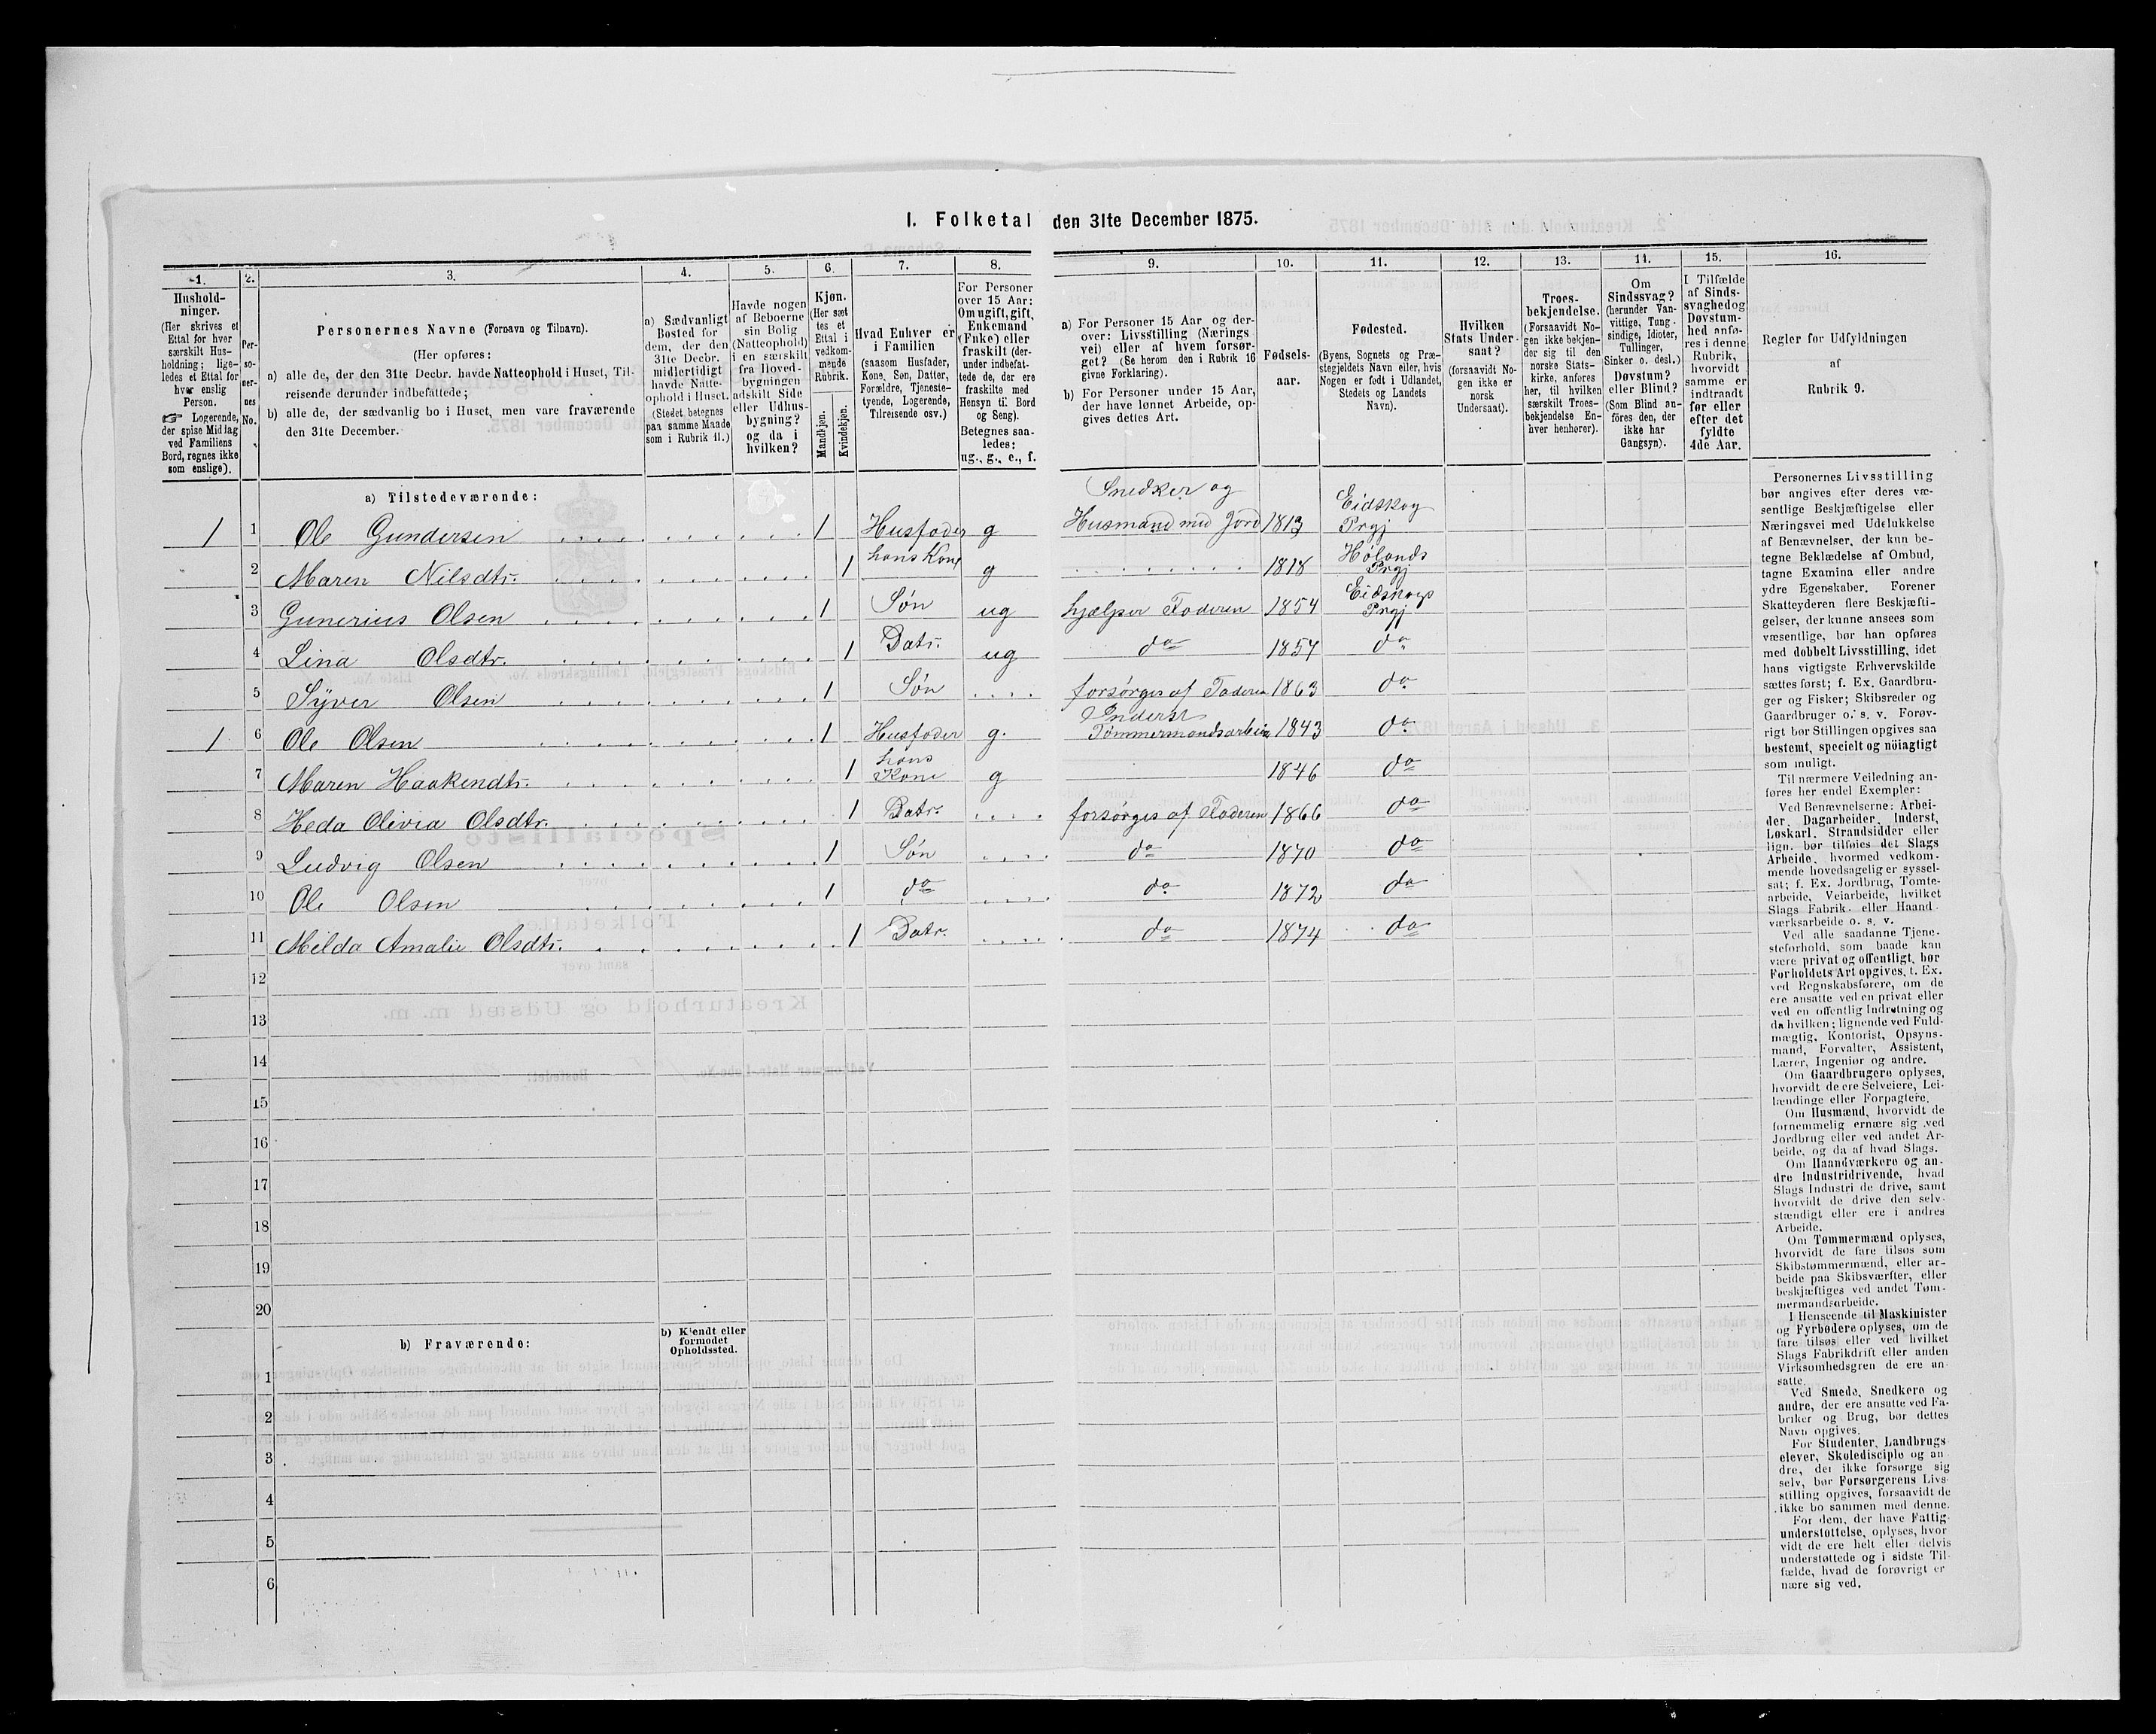 I. Folketal den 31te December 1875.
1. 2. 3. 4. 5. 6. 7. 8. 9. 10. 11. 12. 13. 14. 15. 16.
Hushold-
ninger.
(Her skrives et
Ettal for hver
særskilt Hus-
holdning; lige-
ledes et Ettal for
hver enslig
Person.
☞ Logerende,
der spise Middag
ved Familiens
Bord, regnes ikke
som enslige).
Per-
so-
ner-
nes
No.
Personernes Navne (Fornavn og Tilnavn).
(Her opføres:
a) alle de, der den 31te Decbr. havde Natteophold i Huset, Til-
reisende derunder indbefattede;
b) alle de, der sædvanlig bo i Huset, men vare fraværende
den 31te December.
a) Sædvanligt
Bosted for
dem, der den
31te Decbr.
midlertidigt
havde Natte-
ophold i Huset.
(Stedet betegnes
paa samme Maade
som i Rubrik 11.)
Havde nogen
af Beboerne
sin Bolig
(Natteophold)
i en særskilt
fra Hoved-
bygningen
adskilt Side
eller Udhus-
bygning?
og da i
hvilken?
Kjøn.
(Her sæt
tes et
Ettal i
vedkom-
mende
Rubrik.
Mandkjøn.
Kvindekjøn.
Hvad Enhver er
i Familien
(saasom Husfader,
Kone, Søn, Datter,
Forældre, Tjeneste-
tyende, Logerende,
Tilreisende osv.)
For Personer
over 15 Aar:
Om ugift, gift,
Enkemand
(Enke) eller
fraskilt (der-
under indbefat-
tede de, der ere
fraskilte med
Hensyn til Bord
og Seng).
Betegnes saa-
ledes:
ug., g., e., f.
a) For Personer 15 Aar og der-
over: Livsstilling (Nærings
vei) eller af hvem forsør-
get? (Se herom den i Rubrik 16
givne Forklaring).
b) For Personer under 15 Aar,
der have lønnet Arbeide, op-
gives dettes Art.
Fødsels-
aar.
Fødested.
(Byens, Sognets og Præ-
stegjeldets Navn eller, hvis
Nogen er født i Udlandet,
Stedets og Landets
Navn).
Hvilken
Stats Under-
saat?
(forsaavidt No-
gen ikke er
norsk
Undersaat).
Troes-
bekjendelse.
(Forsaavidt No-
gen ikke bekjen-
der sig til den
norske Stats-
kirke, anføres
her, til hvilken
særskilt Troes-
bekjendelse En-
hver henhører).
Om
Sindssvag?
(herunder Van-
vittige, Tung-
sindige, Idioter,
Tullinger,
Sinker o. desl.)
Døvstum?
eller Blind?
(Som Blind an-
føres den, der
ikke har
Gangsyn).
I Tilfælde
af Sinds-
svaghed og
Døvstum-
hed anfø-
res i denne
Rubrik,
hvorvidt
samme er
indtraadt
før eller
efter det
fyldte
4de Aar.
Regler for Udfyldningen
af
Rubrik 9.
a) Tilstedeværende:
1 1 Ole Gundersen 1 Husfader g Snedker og Husmand med Jord 1813 Eidskog Prgj
2 Maren Nilsdtr. 1 hans Kone g 1818 Hølands Prgj
3 Gunerius Olsen 1 Søn ug hjælper Faderen 1854 Eidskogs Prgj
4 Lina Olsdtr. 1 Datr. ug do 1857 do
5 Syver Olsen 1 Søn forsørges af Faderen 1863 do
1 6 Ole Olsen 1 Husfader g. Inderst Tømmermandsarbeide 1843 do
7 Maren Haakendtr. 1 hans Kone g 1846 do
8 Heda Olivia Olsdtr. 1 Datr. forsørges af Faderen 1866 do
9 Ludvig Olsen 1 Søn do 1870 do
10 Ole Olsen 1 do do 1872 do
11 Milda Amalie Olsdtr. 1 Datr. do 1874 do
12
13
14
15
16
17
18
19
20
b) Fraværende:
b) Kjendt eller
formodet
Opholdssted.
1
2
3
4
5
6
Personernes Livsstilling
bør angives efter deres væ-
sentlige Beskjæftigelse eller
Næringsvei med Udelukkelse
af Benævnelser, der kun be-
tegne Beklædelse af Ombud,
tagne Examina eller andre
ydre Egenskaber. Forener
Skatteyderen flere Beskjæfti-
gelser, der kunne ansees som
væsentlige, bør han opføres
med dobbelt Livsstilling, idet
hans vigtigste Erhvervskilde
sættes først; f. Ex. Gaardbru-
ger og Fisker; Skibsreder og
Gaardbruger o. s. v. Forøv-
rigt bør Stillingen opgives saa
bestemt, specielt og nöiagtigt
som muligt.
Til nærmere Veiledning an-
føres her endel Exempler:
Ved Benævnelserne: Arbei-
der, Dagarbeider, Inderst,
Løskarl, Strandsidder eller
lign. bør tilføies det Slags
Arbeide, hvormed vedkom-
mende hovedsagelig er syssel-
sat; f. Ex. Jordbrug, Tomte-
arbeide, Veiarbeide, hvilket
Slags Fabrik- eller Haand-
værksarbeide o. s. v.
Ved alle saadanne Tjene-
steforhold, som baade kan
være privat og offentligt, bør
Forholdets Art opgives, t. Ex.
ved Regnskabsførere, om de
ere ansatte ved en privat eller
ved en offentlig Indretning og
da hvilken; lignende ved Fuld-
mægtig, Kontorist, Opsyns-
mand, Forvalter, Assistent,
Lærer, Ingeniør og andre.
Om Gaardbrugere oplyses,
hvorvidt de ere Selveiere, Lei-
lændinge eller Forpagtere.
Om Husmænd, hvorvidt de
fornemmelig ernære sig ved
Jordbrug eller ved andet Ar-
beide, og da af hvad Slags.
Om Haandværkere og an-
dre Industridrivende, hvad
Slags Industri de drive, samt
hvorvidt de drive den selv-
stændigt eller ere i andres
Arbeide.
Om Tømmermænd oplyses,
hvorvidt de fare tilsøs som
Skibstømmermænd, eller ar-
beide paa Skibsværfter, eller
beskjæftiges ved andet Tøm-
mermandsarbeide.
I Henseende til Maskinister
og Fyrbødere oplyses, om de
fare tilsøs eller ved hvilket
Slags Fabrikdrift eller anden
Virksomhedsgren de ere an-
satte.
Ved Smede, Snedkere og
andre, der ere ansatte ved Fa-
briker og Brug, bør dettes
Navn opgives.
For Studenter, Landbrugs
elever, Skoledisciple og an
dre, der ikke forsørge sig
selv, bør Forsørgerens Livs-
stilling opgives, forsaavidt de
ikke bo sammen med denne.
For dem, der have Fattig-
understøttelse, oplyses, hvor
vidt de ere helt eller delvis
understøttede og i sidste Til-
fælde, hvad de forøvrigt er
nære sig ved.